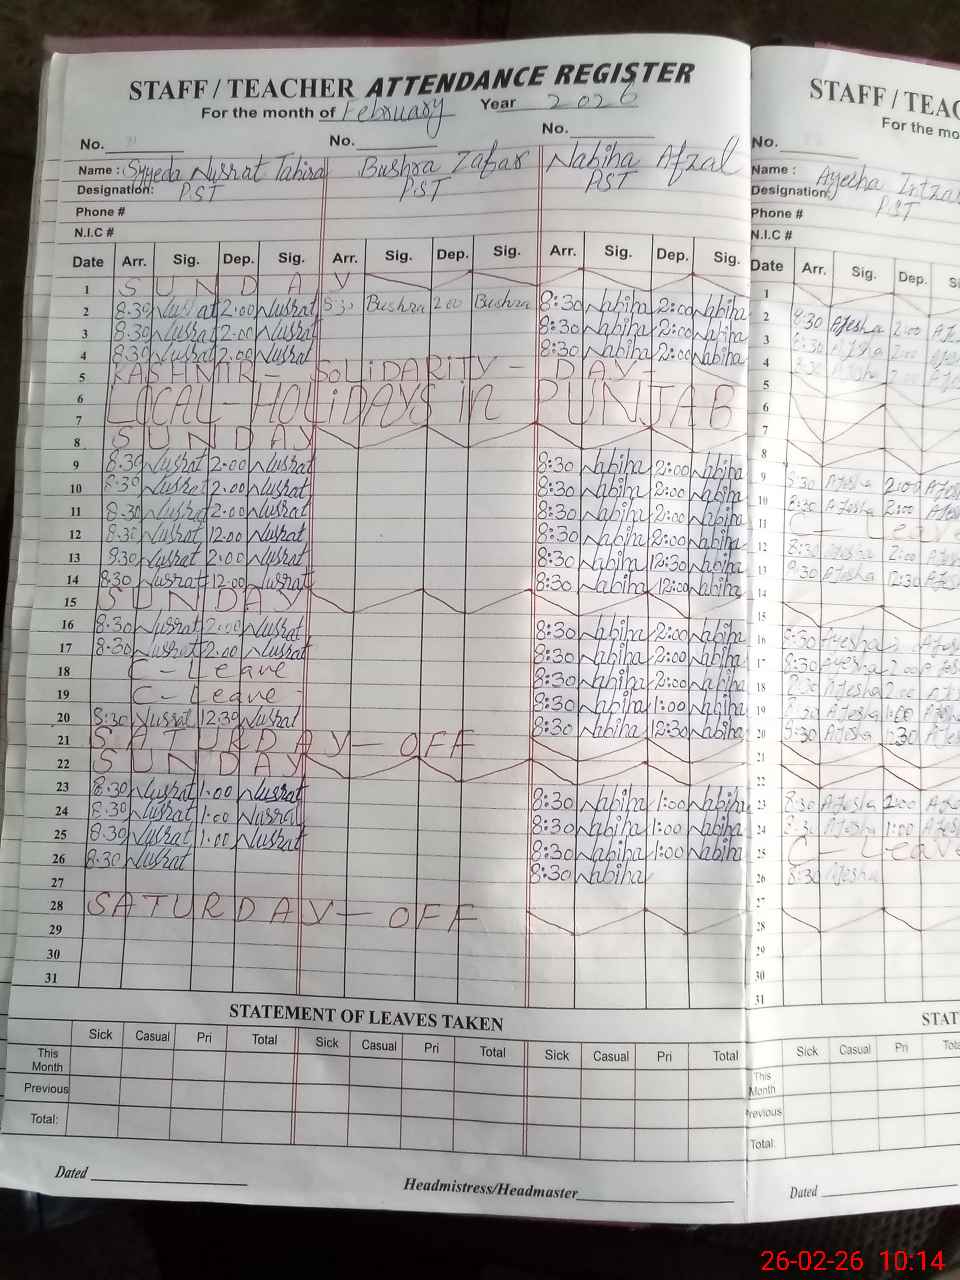 STAFF / TEACHER ATTENDANCE REGISTER
For the month of February Year 2026
No. No. No.
Name : Syyeda Nusrat Tahira Bushra Zafar Nabiha Afzal
Designation: PST PST PST
Phone #
N.I.C #
Date Arr. Sig. Dep. Sig. Arr. Sig. Dep. Sig. Arr. Sig. Dep. Sig.
1 SUNDAY
2 8:30 Nusrat 2:00 Nusrat 8:30 Bushra 2:00 Bushra 8:30 Nabiha 2:00 Nabiha
3 8:30 Nusrat 2:00 Nusrat 8:30 Nabiha 2:00 Nabiha
4 8:30 Nusrat 2:00 Nusrat 8:30 Nabiha 2:00 Nabiha
5 KASHMIR - SOLiDARITY - DAY -
6 LOCAL - HOLiDAYS in PUNJAB
7
8 SUNDAY
9 8:30 Nusrat 2:00 Nusrat 8:30 Nabiha 2:00 Nabiha
10 8:30 Nusrat 2:00 Nusrat 8:30 Nabiha 2:00 Nabiha
11 8:30 Nusrat 2:00 Nusrat 8:30 Nabiha 2:00 Nabiha
12 8:30 Nusrat 12:00 Nusrat 8:30 Nabiha 2:00 Nabiha
13 8:30 Nusrat 2:00 Nusrat 8:30 Nabiha 12:30 Nabiha
14 8:30 Nusrat 12:00 Nusrat 8:30 Nabiha 12:00 Nabiha
15 SUNDAY
16 8:30 Nusrat 2:00 Nusrat 8:30 Nabiha 2:00 Nabiha
17 8:30 Nusrat 2:00 Nusrat 8:30 Nabiha 2:00 Nabiha
18 C - Leave 8:30 Nabiha 2:00 Nabiha
19 C - Leave - 8:30 Nabiha 1:00 Nabiha
20 8:30 Nusrat 12:30 Nusrat 8:30 Nabiha 12:30 Nabiha
21 SATURDAY - OFF
22 SUNDAY
23 8:30 Nusrat 1:00 Nusrat 8:30 Nabiha 1:00 Nabiha
24 8:30 Nusrat 1:00 Nusrat 8:30 Nabiha 1:00 Nabiha
25 8:30 Nusrat 1:00 Nusrat 8:30 Nabiha 1:00 Nabiha
26 8:30 Nusrat 8:30 Nabiha
27
28 SATURDAY - OFF
29
30
31
STATEMENT OF LEAVES TAKEN
Sick Casual Pri Total Sick Casual Pri Total Sick Casual Pri Total
This Month
Previous
Total:
Dated Headmistress/Headmaster
STAFF / TEAC
For the mo
No.
Name : Ayesha Intzar
Designation: PST
Phone #
N.I.C #
Date Arr. Sig. Dep.
1
2 8:30 Ajesha 2:00 Ajesh
3 8:30 Ajesha 2:00 Ajesh
4 8:30 Ajesha 2:00
5
6
7
8
9 8:30 Ajesha 2:00 Ajesh
10 8:30 Ajesha 2:00 Ajesh
11 C - Leave
12 8:30 Ajesha 2:00 Ajesh
13 8:30 Ajesha 12:30 Ajesh
14
15
16 8:30 Ayesha 2 Ajesh
17 8:30 Ayesha 2:00 Ajesh
18 Ajesha 2:00
19 8:30 Ajesha 1:00 Ajesh
20 8:30 Ajesha 12:30 Ajesh
21
22
23 8:30 Ajesha 2:00
24 8:30 Ajesha 1:00 Ajesh
25 C - Leave
26 8:30 Ajesha
27
28
29
30
31
STAT
Sick Casual Pri Tota
This Month
Previous
Total:
Dated
26-02-26 10:14